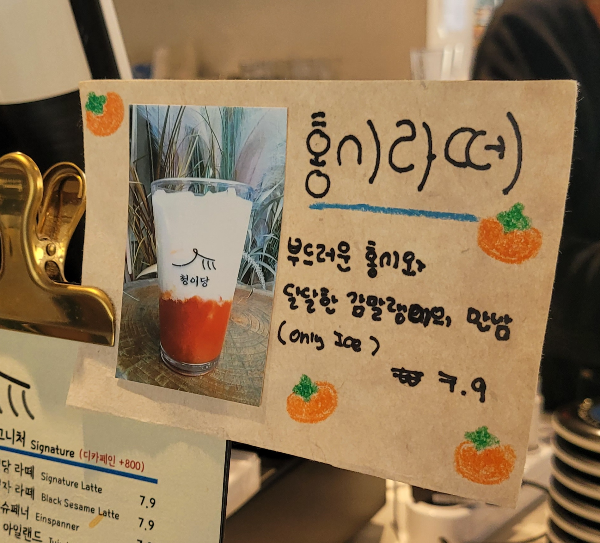 홍시라떼
청이당
부드러운 홍시와
달달한 감말랭이의 만남
(only Ice)
₩ 7.9
그니처 Signature (디카페인 +800)
당 라떼 Signature Latte 7.9
자 라떼 Black Sesame Latte 7.9
슈페너 Einspanner 7.9
아일랜드